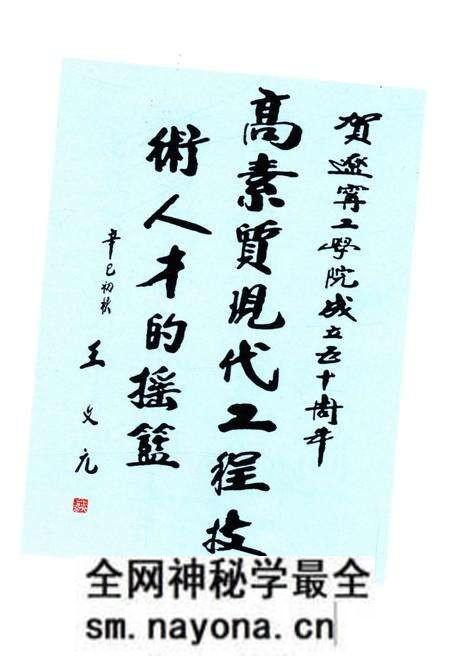 賀遼寧工學院成立五十周年
高素質現代工程技
術人才的摇籃
辛巳初秋
王文元
全网神秘学最全
sm.nayona.cn